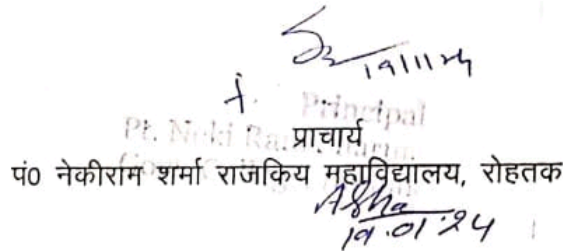 19/1/24
Principal
Pt. Neki Ram
प्राचार्य
पं० नेकीराम शर्मा राजकिय महाविद्यालय, रोहतक
Asha
19.01.24